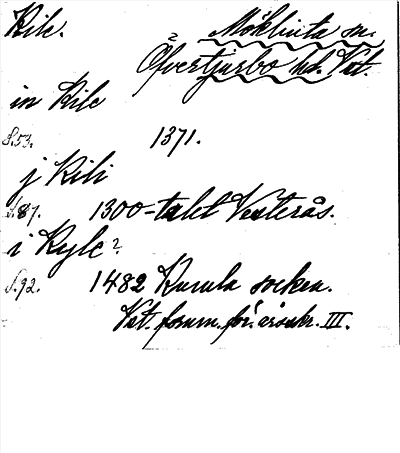 Kile. Möklinta sn.
Öfvertjurbo hd. Vst.
in Kile
S.53. 1371.
j Kili
S.87. 1300-talet Vesterås.
i Kyle?
S.92. 1482 Kumla socken.
Vst. fornm. för. årsskr. III.